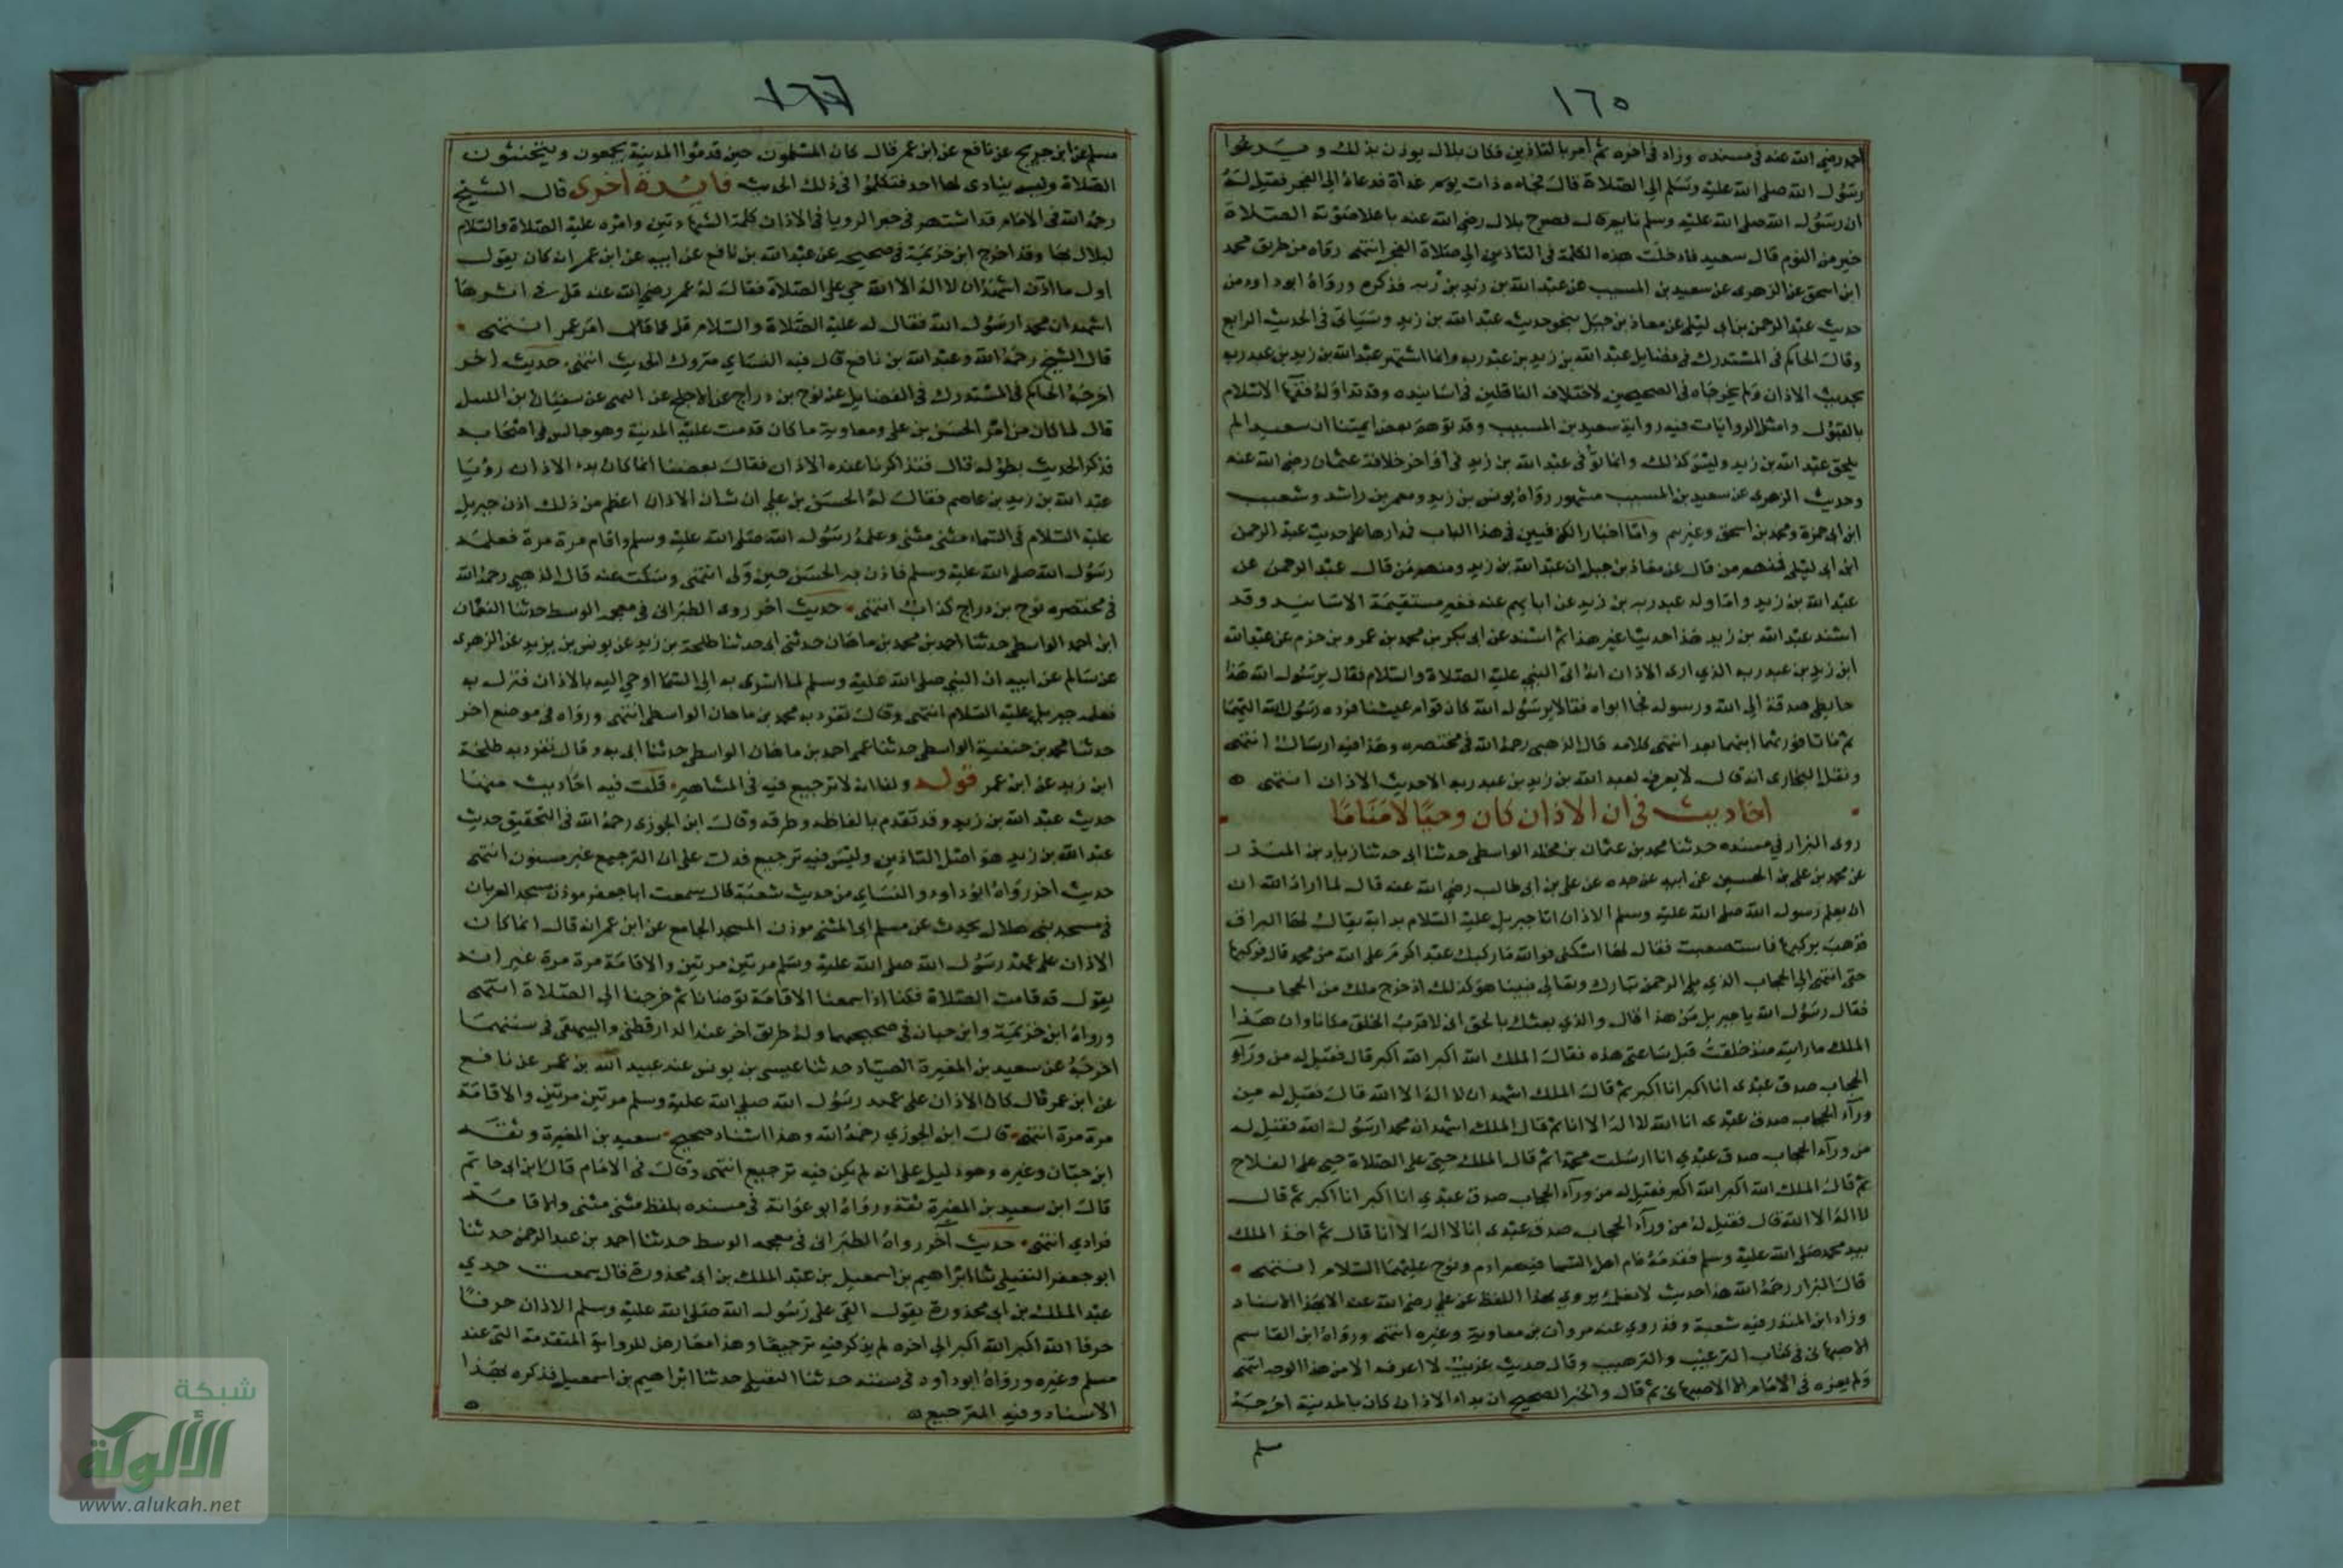 ١٦٥
احمد رضي الله عنه في مسنده وزاد في اخره ثم امر بالتاذين فكان بلال يوذن بذلك ويدعوا
رسول الله صلى الله عليه وسلم الي الصلاة قال فجاه ذات يوم غداة فدعاه الي الفجر فقيل له
ان رسول الله صلى الله عليه وسلم نايم قال فصرخ بلال رضي الله عنه باعلا صوته الصلاة
خير من النوم قال سعيد فادخلت هذه الكلمة في التاذين الي صلاة الفجر انتهى رواه من طريق محمد
ابن اسحق عن الزهرى عن سعيد بن المسيب عن عبد الله بن زيد بن ربه فذكره ورواه ابو داود من
حديث عبد الرحمن بن ابى ليلى عن معاذ بن جبل بنحو حديث عبد الله بن زيد وسياتى في الحديث الرابع
وقال الحاكم في المستدرك في فضايل عبد الله بن زيد بن عبد ربه وانما اشتهر عبد الله بن زيد بن عبد ربه
بحديث الاذان ولم يخرجاه في الصحيحين لاختلاف الناقلين في اسانيده وقد تداوله فقها الاسلام
بالقبول وامثل الروايات فيه رواية سعيد بن المسيب وقد توهم بعض ايمتنا ان سعيدا لم
يلحق عبد الله بن زيد وليس كذلك وانما توفى عبد الله بن زيد في اواخر خلافة عثمان رضي الله عنه
وحديث الزهرى عن سعيد بن المسيب مشهور رواه يونس بن زيد ومعمر بن راشد وشعيب
ابن ابى حمزة ومحمد بن اسحق وغيرهم واما اخبار الكوفيين في هذا الباب فمدارها على حديث عبد الرحمن
ابن ابى ليلى فمنهم من قال عن معاذ بن جبل ان عبد الله بن زيد ومنهم من قال عبد الرحمن عن
عبد الله بن زيد واما ولد عبد ربه بن زيد عن ابايهم عنه فغير مستقيمة الاسانيد وقد
اسند عبد الله بن زيد هذا حديثا غير هذا ثم اسند عن ابى بكر بن محمد بن عمرو بن حزم عن عبد الله
ابن زيد بن عبد ربه الذي ارى الاذان انه اتى النبي عليه الصلاة والسلام فقال يرسول الله هذا
حايطي صدقة الي الله ورسوله فجا ابواه فقالا يرسول الله كان قوام عيشنا فرده رسول الله اليهما
ثم ماتا فورثهما ابنهما بعد انتهى كلامه قال الذهبي رحمه الله في مختصره وهذا فيه ارسال انتهى
ونقل البخارى انه قال لا يعرف لعبد الله بن زيد بن عبد ربه الا حديث الاذان انتهى
احاديث في ان الاذان كان وحيا لا مناما
روى البزار في مسنده حدثنا محمد بن عثمان بن مخلد الواسطي حدثنا ابى حدثنا زياد بن المنذر
عن محمد بن على بن الحسين عن ابيه عن جده عن على بن ابى طالب رضي الله عنه قال لما اراد الله ان
ان يعلم رسول الله صلى الله عليه وسلم الاذان اتا جبريل عليه السلام بدابة يقال لها البراق
فذهب يركبها فاستصعبت فقال لها اسكني فوالله ما ركبك عبد اكرم على الله من محمد قال فركبها
حتى انتهى الي الحجاب الذي يلى الرحمن تبارك وتعالى فبينا هو كذلك اذ خرج ملك من الحجاب
فقال رسول الله يا جبريل من هذا قال والذي بعثك بالحق انى لاقرب الخلق مكانا وان هذا
الملك ما رايته منذ خلقت قبل ساعتى هذه فقال الملك الله اكبر الله اكبر قال فقيل له من ورآء
الحجاب صدق عبدى انا اكبر انا اكبر ثم قال الملك اشهد ان لا اله الا الله قال فقيل له من
ورآء الحجاب صدق عبدى انا الله لا اله الا انا ثم قال الملك اشهد ان محمدا رسول الله فقيل له
من ورآء الحجاب صدق عبدي انا ارسلت محمدا ثم قال الملك حي على الصلاة حي على الفلاح
ثم قال الملك الله اكبر الله اكبر فقيل له من ورآء الحجاب صدق عبدي انا اكبر انا اكبر ثم قال
لا اله الا الله قال فقيل له من ورآء الحجاب صدق عبدى انا لا اله الا انا قال ثم اخذ الملك
بيد محمد صلى الله عليه وسلم فقدمه فام اهل السما فيهم ادم ونوح عليهما السلام انتهى
قال البزار رحمه الله هذا حديث لا نعلمه يروي بهذا اللفظ عن علي رضي الله عنه الا بهذا الاسناد
وزاد ابن المنذر فيه شعبة وقد روي عنه مروان بن معاوية وغيره انتهى ورواه ابن القاسم
الاصبهانى في كتاب الترغيب والترهيب وقال حديث غريب لا اعرفه الا من هذا الوجه انتهى
ولم يعزه في الامام الا للاصبهانى ثم قال والخبر الصحيح ان بداء الاذان كان بالمدينة اخرجه
مسلم
١٦٦
مسلم عن ابن جريج عن نافع عن ابن عمر قال كان المسلمون حين قدموا المدينة يجمعون ويتحينون
الصلاة وليس ينادى لها احد فتكلموا في ذلك الحديث فايدة اخرى قال الشيخ
رحمه الله في الامام قد اشتهر في خبر الرويا في الاذان كلمة الشهادتين وامره عليه الصلاة والسلام
لبلال بها وقد اخرج ابن خزيمة في صحيحه عن عبد الله بن نافع عن ابيه عن ابن عمر ان كان يقول
اول ما اذن اشهد ان لا اله الا الله حي على الصلاة فقال له عمر رضي الله عنه قل في اثرها
اشهد ان محمدا رسول الله فقال له عليه الصلاة والسلام قل كما قال امر عمر انتهى
قال الشيخ رحمه الله وعبد الله بن نافع قال فيه النساي متروك الحديث انتهى حديث اخر
اخرجه الحاكم في المستدرك في الفضايل عن نوح بن دراج عن الاجلح عن البهى عن سفيان بن الليل
قال لما كان من امر الحسن بن على ومعاوية ما كان قدمت عليه المدينة وهو جالس في اصحابه
فذكر الحديث بطوله قال فتذاكرنا عنده الاذان فقال بعضنا انما كان بدء الاذان رؤيا
عبد الله بن زيد بن عاصم فقال له الحسن بن على ان شان الاذان اعظم من ذلك اذن جبريل
عليه السلام في السماء مثنى مثنى وعلمه رسول الله صلى الله عليه وسلم واقام مرة مرة فعلمه
رسول الله صلى الله عليه وسلم فاذن به الحسن حين ولى انتهى وسكت عنه قال الذهبي رحمه الله
في مختصره نوح بن دراج كذاب انتهى حديث اخر روى الطبرانى في معجمه الوسط حدثنا النعمان
ابن احمد الواسطي حدثنا احمد بن محمد بن ماهان حدثنى ابى حدثنا طلحة بن زيد عن يونس بن يزيد عن الزهرى
عن سالم عن ابيه ان النبي صلى الله عليه وسلم لما اسرى به الي السما اوحي اليه بالاذان فنزل به
فعلمه جبريل عليه السلام انتهى وقال تفرد به محمد بن ماهان الواسطي انتهى ورواه في موضع اخر
حدثنا محمد بن حنفية الواسطي حدثنا عمى احمد بن ماهان الواسطي حدثنا ابى به وقال تفرد به طلحة
ابن زيد عن ابن عمر قوله ولنا انه لا ترجيع فيه في المشاهير قلت فيه احاديث منها
حديث عبد الله بن زيد وقد تقدم بالفاظه وطرقه وقال ابن الجوزى رحمه الله في التحقيق حديث
عبد الله بن زيد هو اصل التاذين وليس فيه ترجيع فدل على ان الترجيع غير مسنون انتهى
حديث اخر رواه ابو داود والنساي من حديث شعبة قال سمعت ابا جعفر موذن مسجد العريان
في مسجد بنى هلال يحدث عن مسلم ابى المثنى موذن المسجد الجامع عن ابن عمر انه قال انما كان
الاذان على عهد رسول الله صلى الله عليه وسلم مرتين مرتين والاقامة مرة مرة غير انه
يقول قد قامت الصلاة فكنا اذا سمعنا الاقامة توضانا ثم خرجنا الى الصلاة انتهى
ورواه ابن خزيمة وابن حبان في صحيحهما وله طريق اخر عند الدارقطني والبيهقى في سننهما
اخرجه عن سعيد بن المغيرة الصياد حدثنا عيسى بن يونس عنه عبيد الله بن عمر عن نافع
عن ابن عمر قال كان الاذان على عهد رسول الله صلى الله عليه وسلم مرتين مرتين والاقامة
مرة مرة انتهى قال ابن الجوزي رحمه الله وهذا اسناد صحيح سعيد بن المغيرة وثقه
ابن حبان وغيره وهو دليل على انه لم يكن فيه ترجيع انتهى وقال في الامام قال ابن ابى حاتم
قال ابن سعيد بن المغيرة ثقة ورواه ابو عوانة في مسنده بلفظ مثنى مثنى والاقامة
فرادي انتهى حديث آخر رواه الطبرانى في معجمه الوسط حدثنا احمد بن عبد الرحمن حدثنا
ابو جعفر النفيلى ثنا ابراهيم بن اسمعيل بن عبد الملك بن ابى محذورة قال سمعت جدي
عبد الملك بن ابي محذورة يقول القى على رسول الله صلى الله عليه وسلم الاذان حرفا
حرفا الله اكبر الله اكبر الى اخره لم يذكر فيه ترجيعا وهذا معارض للرواية المتقدمة التى عند
مسلم وغيره ورواه ابو داود في سننه حدثنا النفيلى حدثنا ابراهيم بن اسمعيل فذكره بهذا
الاسناد وفيه الترجيع
شبكة
الألوكة
www.alukah.net